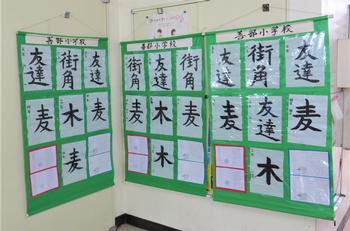 善部小学校
友達
街角
友達
麦
木
麦
麦
善部小学校
街角
友達
街角
麦
木
麦
善部小学校
友達
街角
友達
麦
友達
麦
木